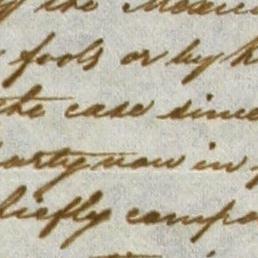 the Mexic
fools or by k
the case since
party now in
hiefly compo